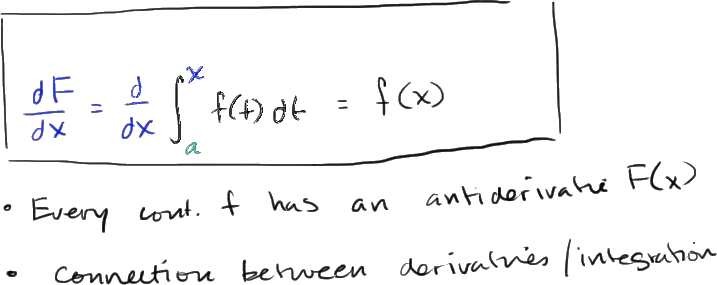 dF/dx = d/dx ∫_a^x f(t) dt = f(x)
• Every cont. f has an antiderivative F(x)
• connection between derivatives/integration